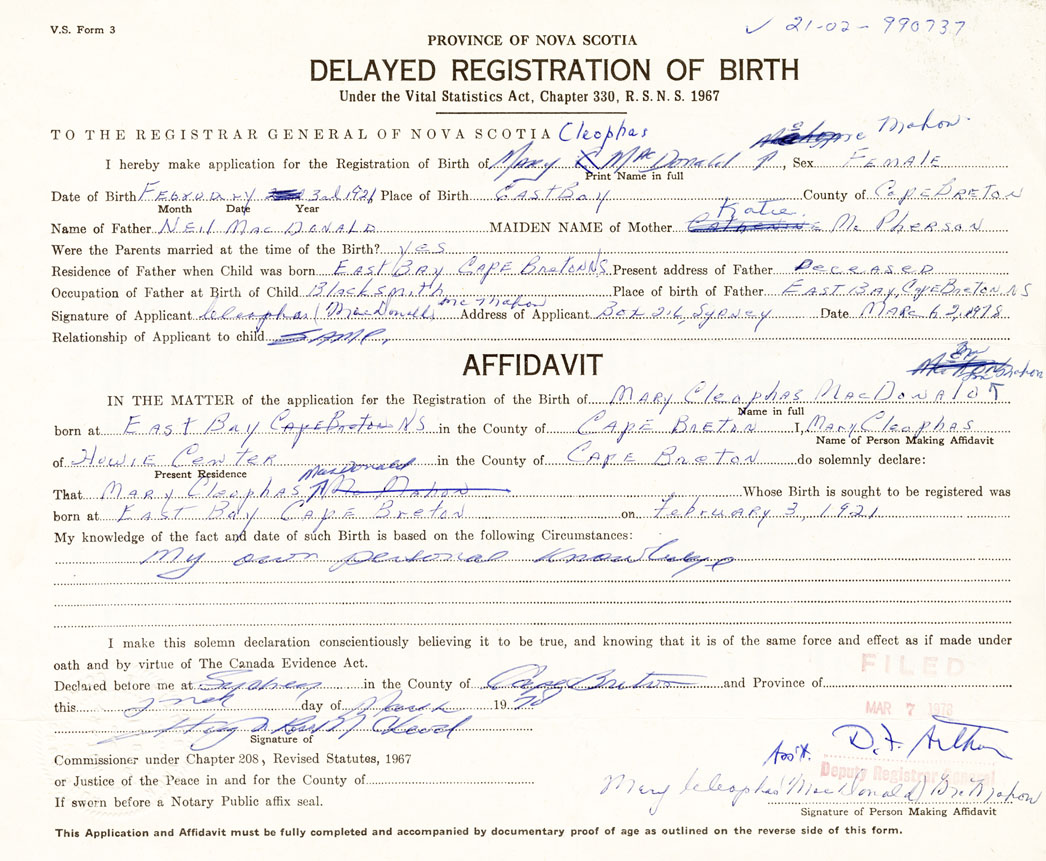 V.S. Form 3
✓ 21-02-990737
PROVINCE OF NOVA SCOTIA
DELAYED REGISTRATION OF BIRTH
Under the Vital Statistics Act, Chapter 330, R.S.N.S. 1967
TO THE REGISTRAR GENERAL OF NOVA SCOTIA Cleophas Mahon
I hereby make application for the Registration of Birth of Mary C MacDonald, Sex FEMALE
Print Name in full
Date of Birth February 3rd 1921 Place of Birth EAST Bay County of CAPE BRETON
Month Date Year
Katie
Name of Father NEIL MacDONALD MAIDEN NAME of Mother CATHERINE Mc PHERSON
Were the Parents married at the time of the Birth? yes
Residence of Father when Child was born EAST BAY CAPE Breton NS Present address of Father Deceased
Occupation of Father at Birth of Child Blacksmith Place of birth of Father EAST BAY, CAPE Breton NS
Signature of Applicant Cleophas (MacDonald) McMahon Address of Applicant Box 216, SYDNEY Date MARCh 2, 1978
Relationship of Applicant to child SAME.
AFFIDAVIT
IN THE MATTER of the application for the Registration of the Birth of MARY Cleophas MacDONALD Mahon
Name in full
born at EAST BAY Cape Breton NS in the County of CAPE BRETON I, Mary Cleophas
Name of Person Making Affidavit
of Howie Center in the County of CAPE Breton do solemnly declare:
Present Residence MacDonald
That MARY Cleophas Mc Mahon Whose Birth is sought to be registered was
born at EAST BAY CAPE Breton on February 3, 1921
My knowledge of the fact and date of such Birth is based on the following Circumstances:
My own personal knowledge
I make this solemn declaration conscientiously believing it to be true, and knowing that it is of the same force and effect as if made under
oath and by virtue of The Canada Evidence Act.
FILED
Declared before me at Sydney in the County of Cape Breton and Province of
this 2nd day of March 1978
MAR 7 1978
Signature of
D.F. Arthur
Commissioner under Chapter 208, Revised Statutes, 1967
Ass't.
Deputy Registrar General
or Justice of the Peace in and for the County of
Mary Cleophas (MacDonald) Mahon
If sworn before a Notary Public affix seal.
Signature of Person Making Affidavit
This Application and Affidavit must be fully completed and accompanied by documentary proof of age as outlined on the reverse side of this form.